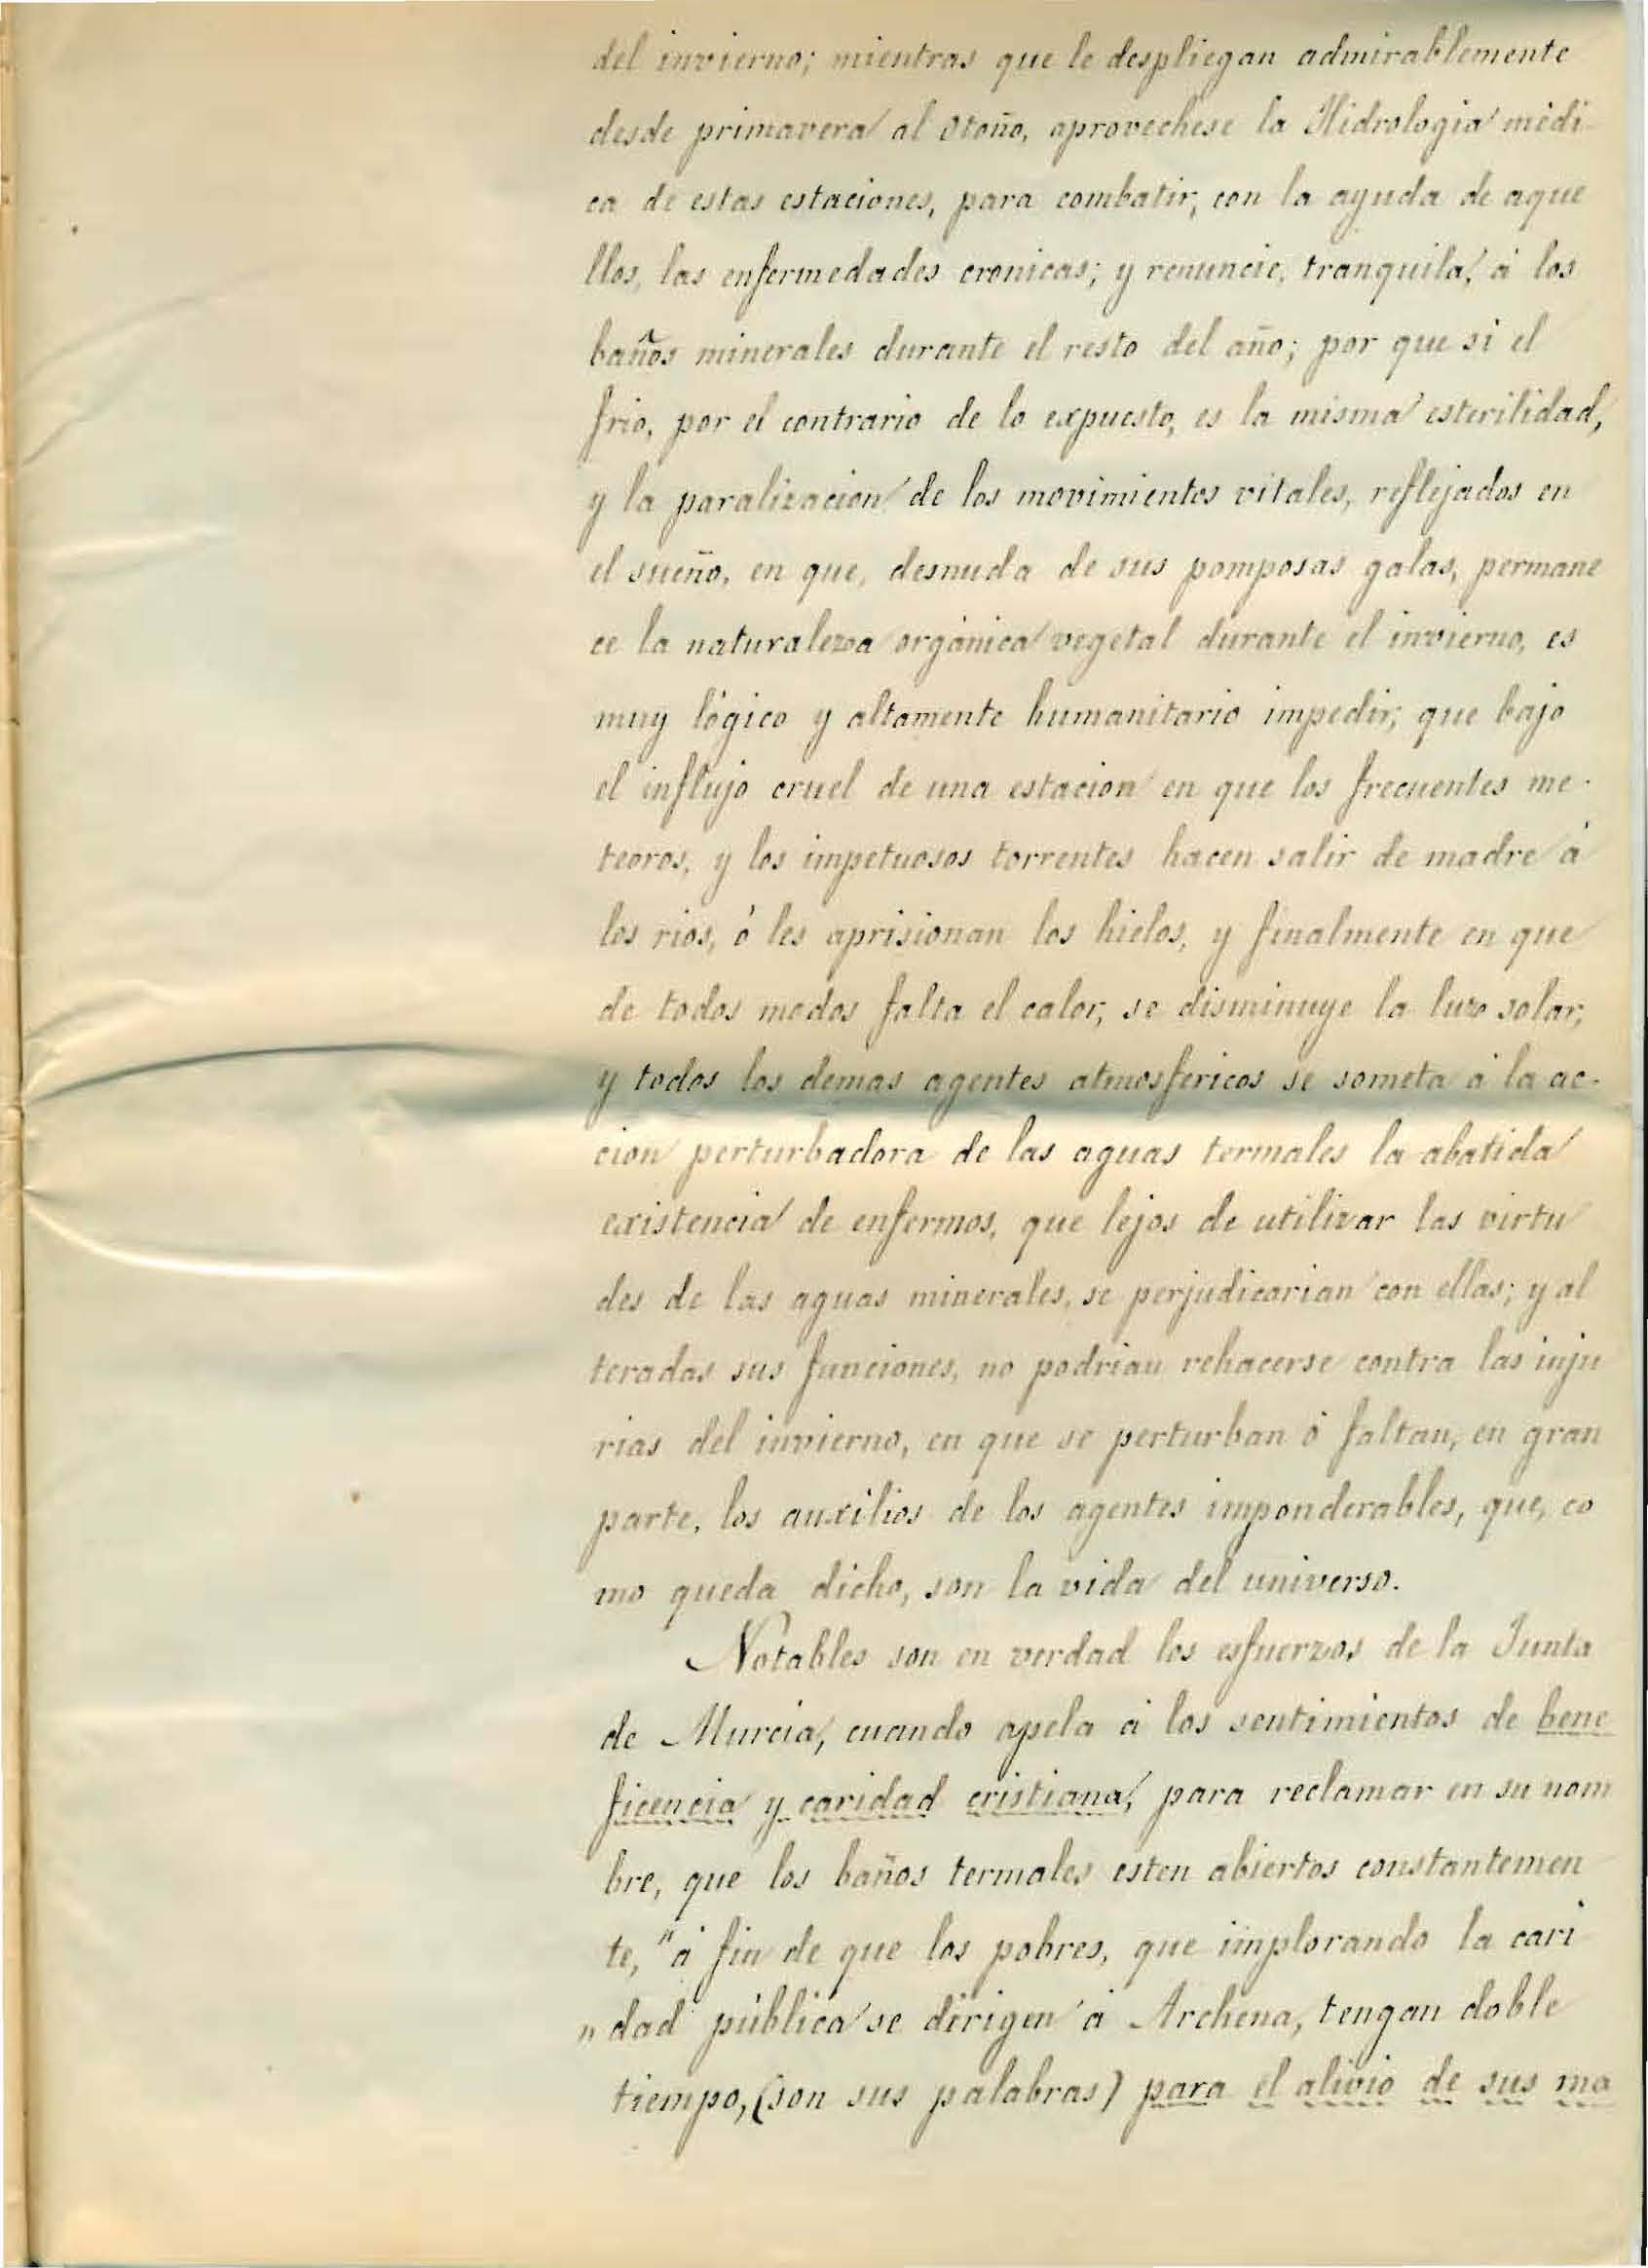 del invierno; mientras que le despliegan admirablemente
desde primavera al Otoño, aprovechese la Hidrologia médi-
ca de estas estaciones, para combatir, con la ayuda de aque
llos, las enfermedades cronicas; y renuncie, tranquila, á los
baños minerales durante el resto del año; por que si el
frio, por el contrario de lo expuesto, es la misma esterilidad,
y la paralizacion de los movimientos vitales, reflejados en
el sueño, en que, desnuda de sus pomposas galas, permane
ce la naturaleza orgánica vegetal durante el invierno, es
muy lógico y altamente humanitario impedir, que bajo
el influjo cruel de una estacion en que los frecuentes me-
teoros, y los impetuosos torrentes hacen salir de madre á
los rios, ó les aprisionan los hielos, y finalmente en que
de todos modos falta el calor, se disminuye la luz solar,
y todos los demas agentes atmosfericos se someta á la ac-
cion perturbadora de las aguas termales la abatida
existencia de enfermos, que lejos de utilizar las virtu
des de las aguas minerales, se perjudicarian con ellas; y al
teradas sus funciones, no podrian rehacerse contra las inju
rias del invierno, en que se perturban ó faltan, en gran
parte, los auxilios de los agentes imponderables, que, co
mo queda dicho, son la vida del universo.
Notables son en verdad los esfuerzos de la Junta
de Murcia, cuando apela á los sentimientos de bene
ficencia y caridad cristiana, para reclamar en su nom
bre, que los baños termales esten abiertos constantemen
te, "á fin de que los pobres, que implorando la cari
" dad pública se dirigen á Archena, tengan doble
tiempo, (son sus palabras) para el alivio de sus ma